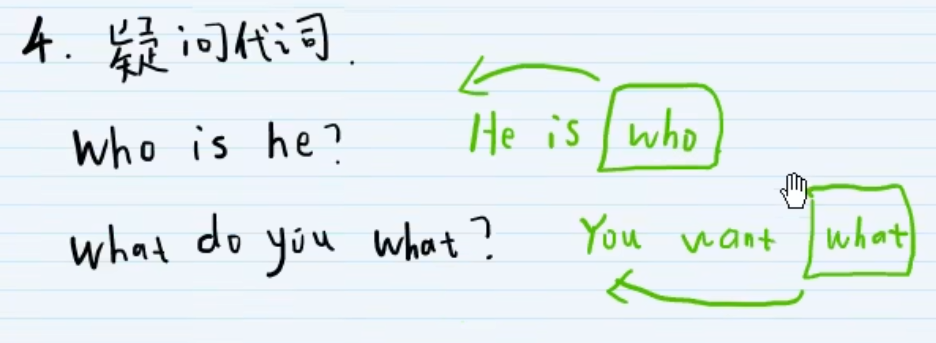 4. 疑问代词.
Who is he? He is who
What do you what? You want what